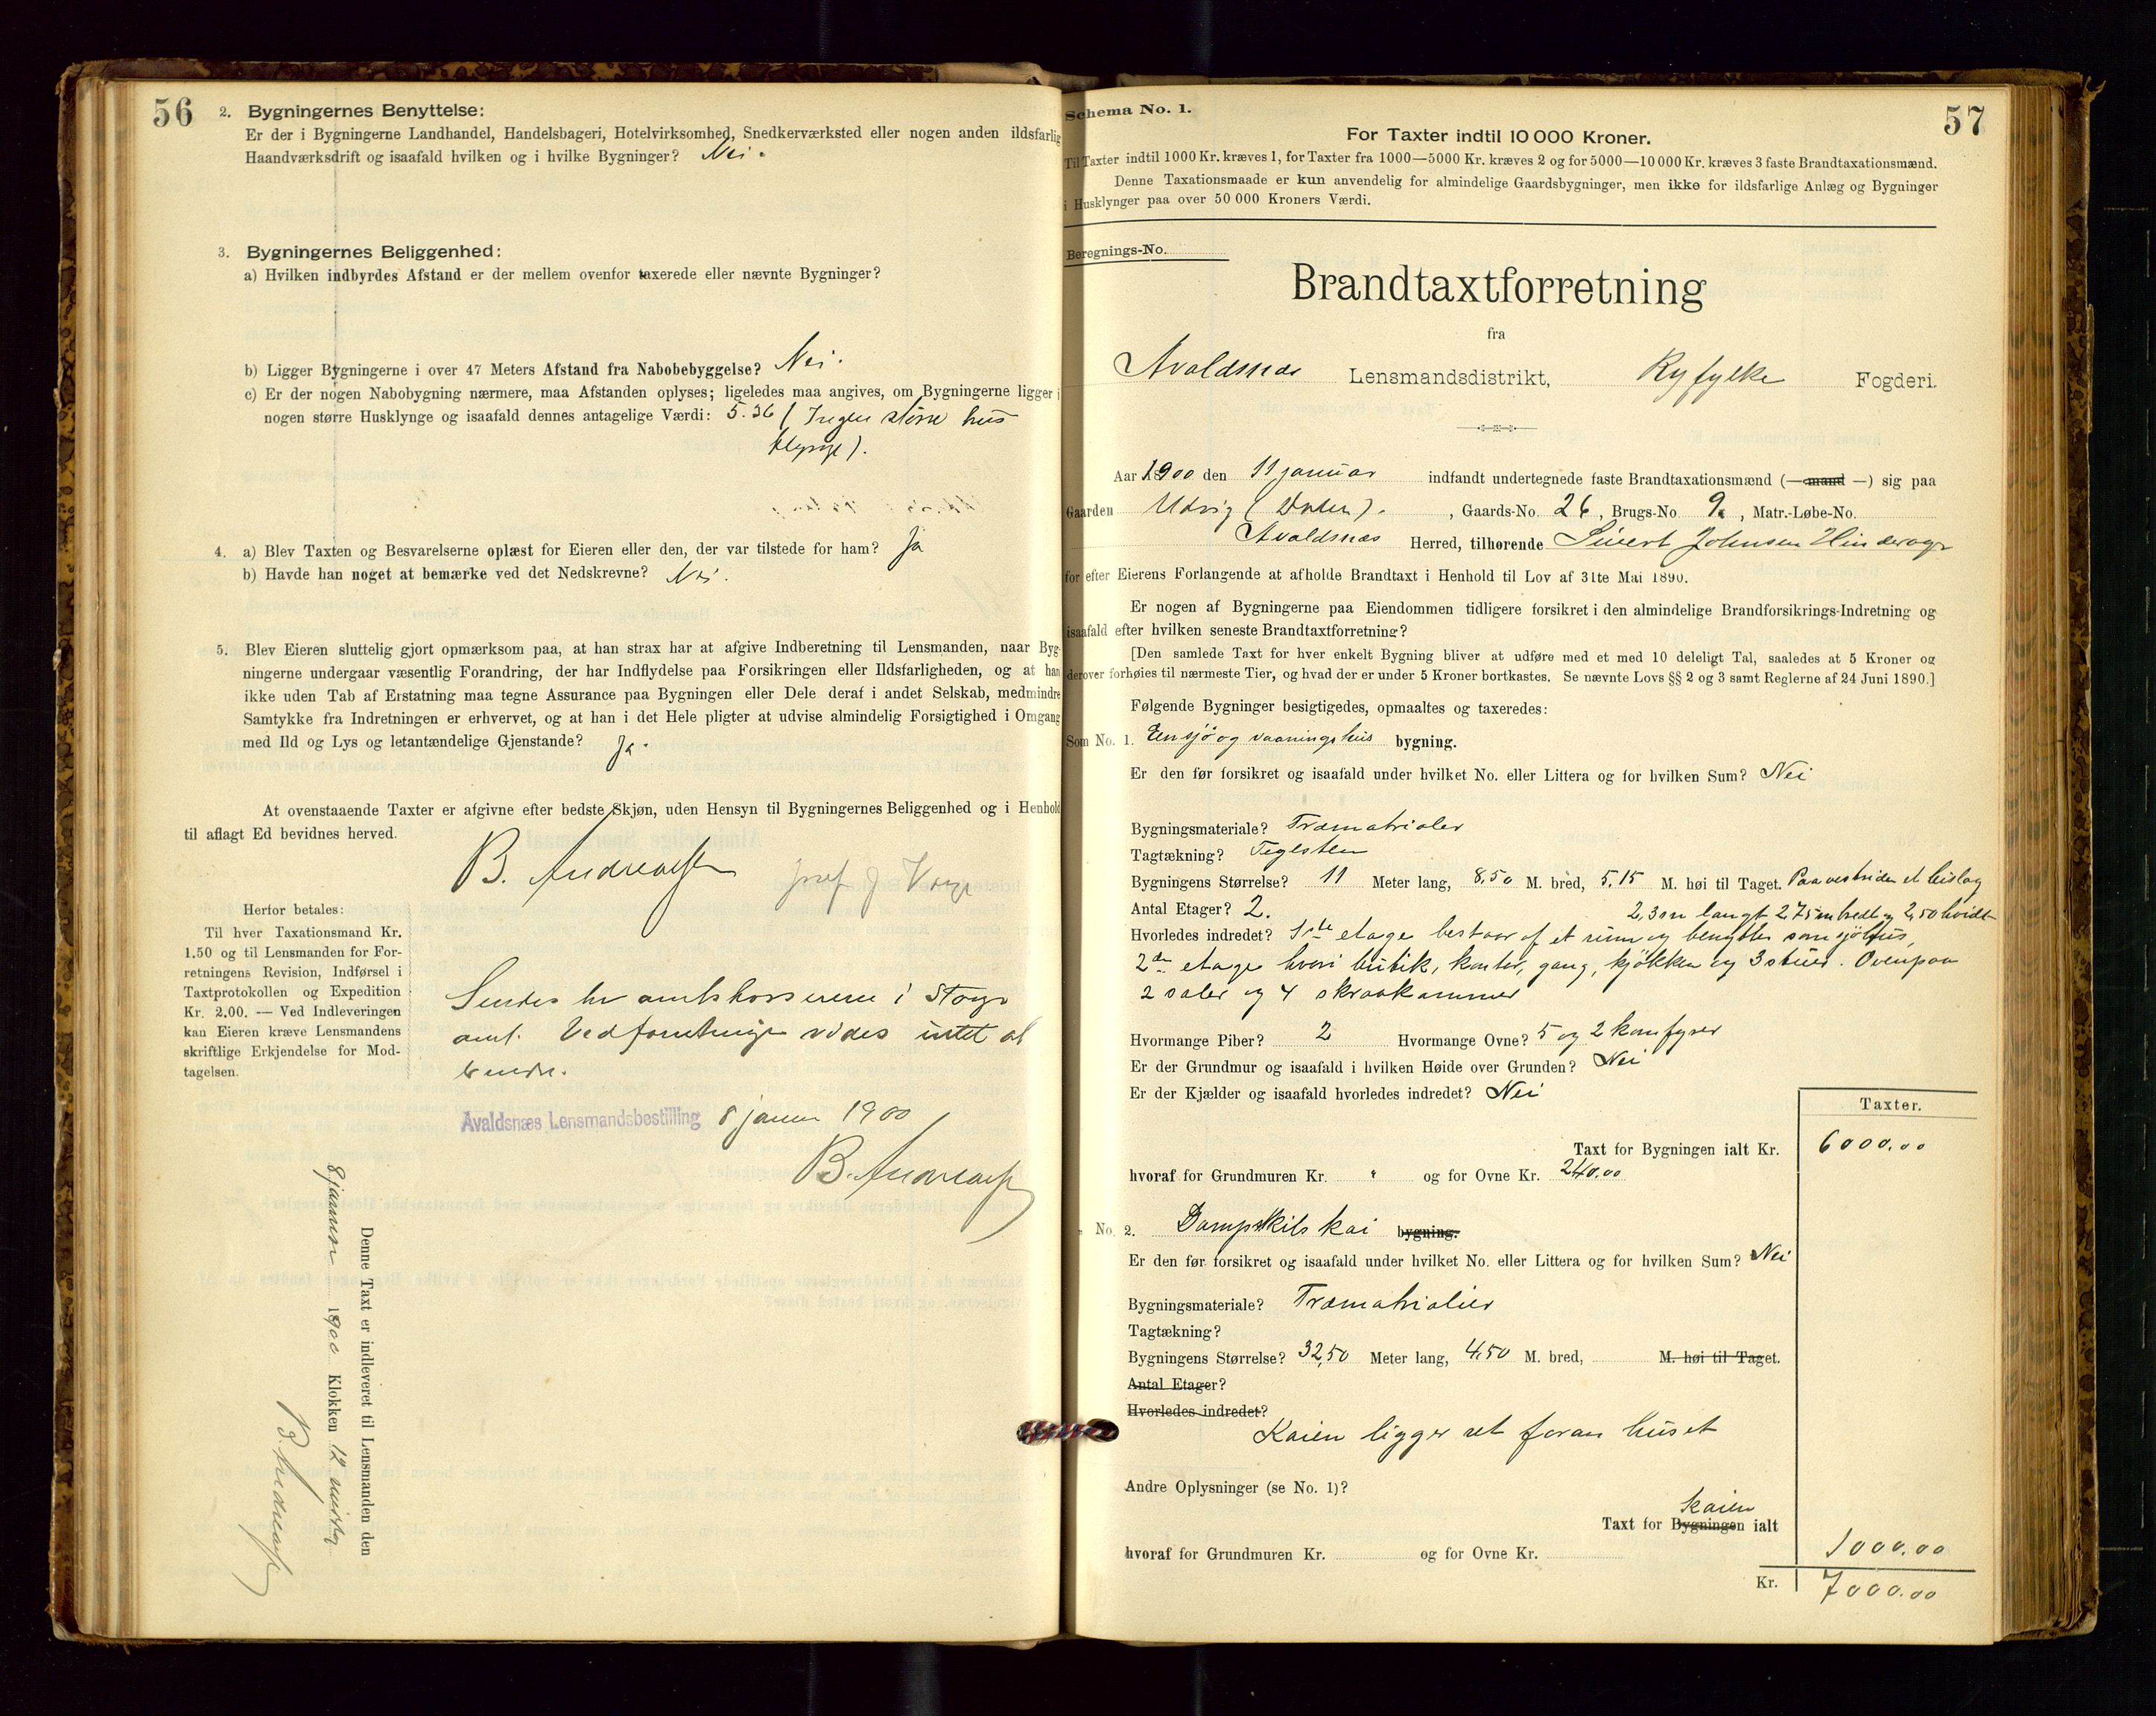 56
2. Bygningernes Benyttelse:
Er der i Bygningerne Landhandel, Handelsbageri, Hotelvirksomhed, Snedkerværksted eller nogen anden ildsfarlig
Haandværksdrift og isaafald hvilken og i hvilke Bygninger? Nei.
3. Bygningernes Beliggenhed:
a) Hvilken indbyrdes Afstand er der mellem ovenfor taxerede eller nævnte Bygninger?
b) Ligger Bygningerne i over 47 Meters Afstand fra Nabobebyggelse? Nei.
c) Er der nogen Nabobygning nærmere, maa Afstanden oplyses; ligeledes maa angives, om Bygningerne ligger i
nogen større Husklynge og isaafald dennes antagelige Værdi: 5.36 (Ingen större hus
klynge).
4. a) Blev Taxten og Besvarelserne oplæst for Eieren eller den, der var tilstede for ham? Ja
b) Havde han noget at bemærke ved det Nedskrevne? Nei.
5. Blev Eieren sluttelig gjort opmærksom paa, at han strax har at afgive Indberetning til Lensmanden, naar Byg-
ningerne undergaar væsentlig Forandring, der har Indflydelse paa Forsikringen eller Ildsfarligheden, og at han
ikke uden Tab af Erstatning maa tegne Assurance paa Bygningen eller Dele deraf i andet Selskab, medmindre
Samtykke fra Indretningen er erhvervet, og at han i det Hele pligter at udvise almindelig Forsigtighed i Omgang
med Ild og Lys og letantændelige Gjenstande? Ja.
At ovenstaaende Taxter er afgivne efter bedste Skjøn, uden Hensyn til Bygningernes Beliggenhed og i Henhold
til aflagt Ed bevidnes herved.
B. Andreassen
Herfor betales:
Til hver Taxationsmand Kr.
1.50 og til Lensmanden for For-
retningens Revision, Indførsel i
Taxtprotokollen og Expedition
Kr. 2.00. — Ved Indleveringen
kan Eieren kræve Lensmandens
skriftlige Erkjendelse for Mod-
tagelsen.
Sendes hr amtskassereren i Stav
amt. Ved forretningen vides intet at
Avaldsnæs Lensmandsbestilling 8 januar 1900
B. Andreassen
Denne Taxt er indleveret til Lensmanden den
8 januar 1900 Klokken 12 middag
B. Andreassen
57
Schema No. 1.
For Taxter indtil 10 000 Kroner.
Til Taxter indtil 1000 Kr. kræves 1, for Taxter fra 1000—5000 Kr. kræves 2 og for 5000—10 000 Kr. kræves 3 faste Brandtaxationsmænd.
Denne Taxationsmaade er kun anvendelig for almindelige Gaardsbygninger, men ikke for ildsfarlige Anlæg og Bygninger
i Husklynger paa over 50 000 Kroners Værdi.
Beregnings-No.
Brandtaxtforretning
fra
Avaldsnes Lensmandsdistrikt, Ryfylke Fogderi.
Aar 1900 den 11 januar indfandt undertegnede faste Brandtaxationsmænd (— mand —) sig paa
Gaarden Udvig (Dalen). , Gaards-No. 26, Brugs-No. 9, Matr.-Løbe-No.
Avaldsnæs Herred, tilhørende Sivert Johnsen Hinderager
for efter Eierens Forlangende at afholde Brandtaxt i Henhold til Lov af 31te Mai 1890.
Er nogen af Bygningerne paa Eiendommen tidligere forsikret i den almindelige Brandforsikrings-Indretning og
isaafald efter hvilken seneste Brandtaxtforretning?
[Den samlede Taxt for hver enkelt Bygning bliver at udføre med et med 10 deleligt Tal, saaledes at 5 Kroner og
derover forhøies til nærmeste Tier, og hvad der er under 5 Kroner bortkastes. Se nævnte Lovs §§ 2 og 3 samt Reglerne af 24 Juni 1890.]
Følgende Bygninger besigtigedes, opmaaltes og taxeredes:
Som No. 1. En sjö og vaaningshus bygning.
Er den før forsikret og isaafald under hvilket No. eller Littera og for hvilken Sum? Nei
Bygningsmateriale? Træmatrialer
Tagtækning? Teglsten
Bygningens Størrelse? 11 Meter lang, 8,50 M. bred, 5,15 M. høi til Taget. Paa vestsiden et bislag
Antal Etager? 2. 2,3 m langt 2,75 m bredt og 2,50 høidt
Hvorledes indredet? 1ste etage bestaar af et rum og benyttes som sjöhus,
2den etage hvori butik, kontor, gang, kjøkken og 3 stuer. Ovenpaa
2 saler og 4 skraakammer
Hvormange Piber? 2 Hvormange Ovne? 5 og 2 komfyrer
Er der Grundmur og isaafald i hvilken Høide over Grunden? Nei
Er der Kjælder og isaafald hvorledes indredet? Nei
Taxter.
Taxt for Bygningen ialt Kr. 6000.00
hvoraf for Grundmuren Kr. " og for Ovne Kr. 240.00
" No. 2. Dampskibs kai bygning.
Er den før forsikret og isaafald under hvilket No. eller Littera og for hvilken Sum? Nei
Bygningsmateriale? Træmatrialier
Tagtækning?
Bygningens Størrelse? 32,50 Meter lang, 4,50 M. bred, M. høi til Taget.
Antal Etager?
Hvorledes indredet?
Kaien ligger ret foran huset
Andre Oplysninger (se No. 1)?
kaien
Taxt for Bygningen ialt 1000.00
hvoraf for Grundmuren Kr. og for Ovne Kr.
Kr. 7000.00